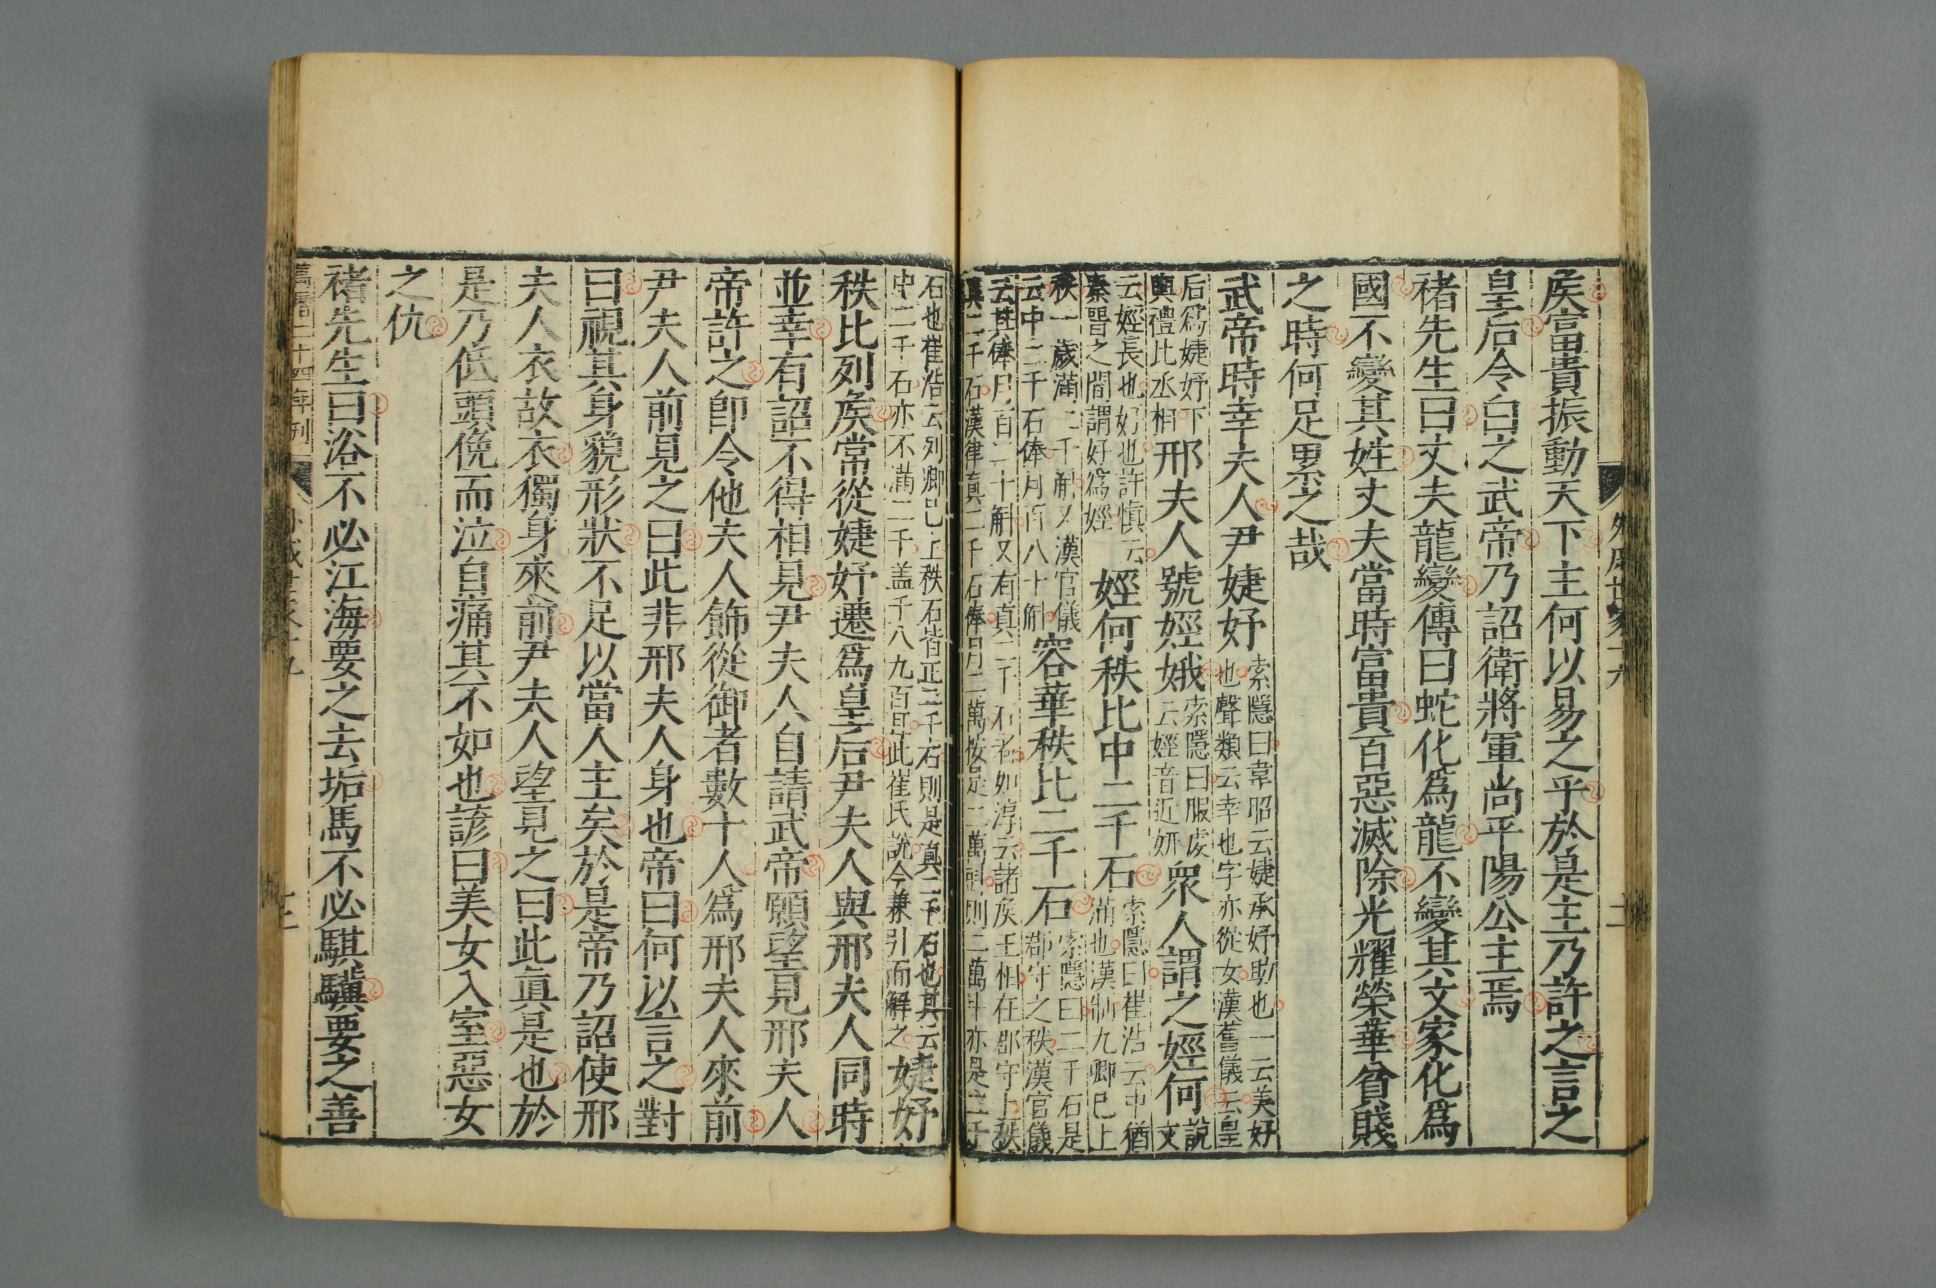 外戚世家十九
十二
侯富貴振動天下主何以易之乎於是主乃許之言之
皇后令白之武帝乃詔衛將軍尚平陽公主焉
褚先生曰丈夫龍變傳曰蛇化爲龍不變其文家化爲
國不變其姓丈夫當時富貴百惡滅除光耀榮華貧賤
之時何足累之哉
武帝時幸夫人尹婕妤索隱曰韋昭云婕承妤助也一云美好也聲類云幸也字亦從女漢舊儀云皇
后爲婕妤下輿禮比丞相邢夫人號娙娥索隱曰服虔云娙音近妍衆人謂之娙何說文
云娙長也好也許慎云秦晉之間謂好爲娙娙何秩比中二千石索隱曰崔浩云中猶滿也漢制九卿已上
秩一歲滿二千斛又漢官儀云中二千石俸月百八十斛容華秩比二千石索隱曰二千石是郡守之秩漢官儀
云其俸月百二十斛又有真二千石者如淳云諸侯王相在郡守上秩真二千石漢律真二千石俸月二萬按是二萬斗則二萬斗亦是二千
石也崔浩云列卿已上秩石皆正二千石則是真二千石也其云中二千石亦不滿二千盖千八九百耳此崔氏說今兼引而解之婕妤
秩比列侯常從婕妤遷爲皇后尹夫人與邢夫人同時
並幸有詔不得相見尹夫人自請武帝願望見邢夫人
帝許之卽令他夫人飾從御者數十人爲邢夫人來前
尹夫人前見之曰此非邢夫人身也帝曰何以言之對
曰視其身貌形狀不足以當人主矣於是帝乃詔使邢
夫人衣故衣獨身來前尹夫人望見之曰此真是也於
是乃低頭俛而泣自痛其不如也諺曰美女入室惡女
之仇
褚先生曰浴不必江海要之去垢馬不必騏驥要之善
萬曆二十四年刊
外戚世家十九
十二